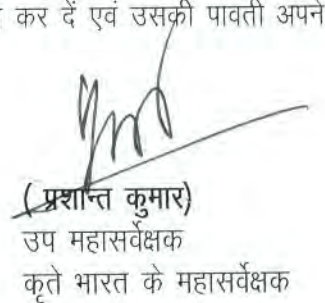 कर दें एवं उसकी पावती अपने
(प्रशान्त कुमार)
उप महासर्वेक्षक
कृते भारत के महासर्वेक्षक